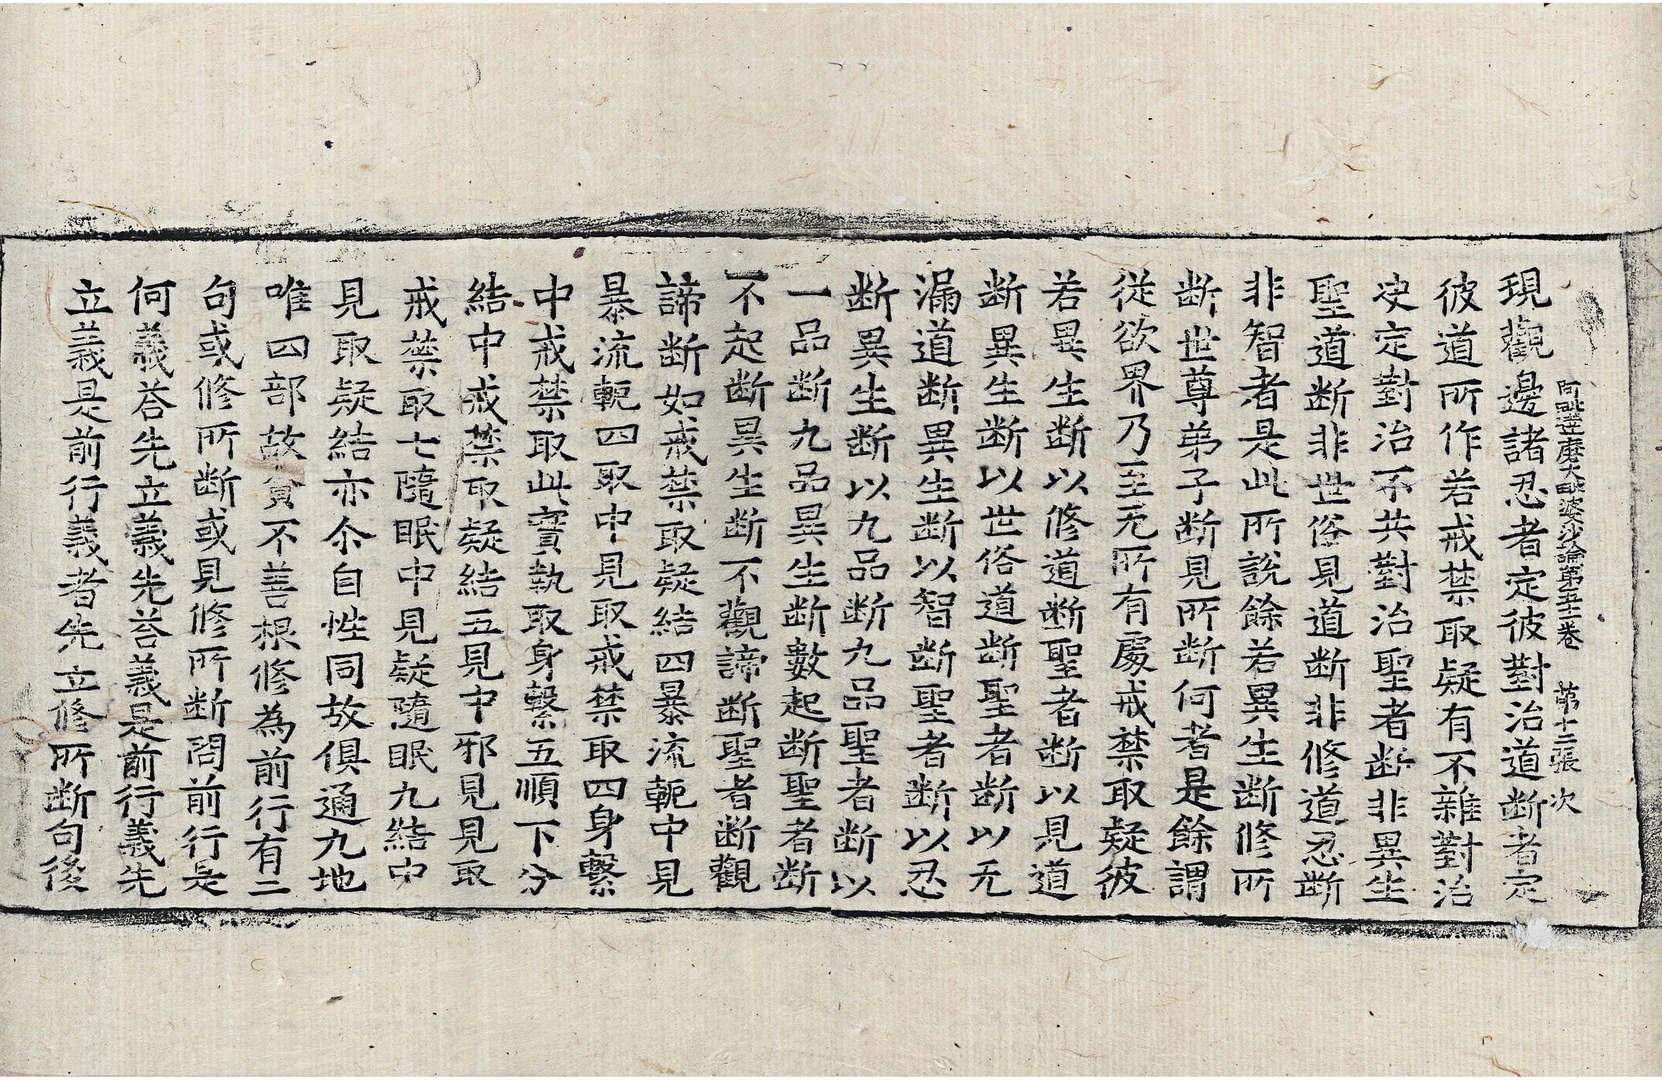 阿毗達磨大毗婆沙論第五十二卷　第十二張　次
現觀邊諸忍者定彼對治道断者定
彼道所作若戒禁取疑有不雜對治
决定對治不共對治聖者断非異生
聖道断非世俗見道断非修道忍断
非智者是此所說餘若異生断修所
断世尊弟子断見所断何者是餘謂
從欲界乃至无所有處戒禁取疑彼
若異生断以修道断聖者断以見道
断異生断以世俗道断聖者断以无
漏道断異生断以智断聖者断以忍
断異生断以九品断九品聖者断以
一品断九品異生断數起断聖者断
不起断異生断不觀諦断聖者断觀
諦断如戒禁取疑結四暴流軛中見
暴流軛四取中見取戒禁取四身繫
中戒禁取此實執取身繫五順下分
結中戒禁取疑結五見中邪見見取
戒禁取七隨眠中見疑隨眠九結中
見取疑結亦尒自性同故俱通九地
唯四部故貪不善根修為前行有二
句或修所断或見修所断問前行是
何義荅先立義先荅義是前行義先
立義是前行義者先立修所断句後